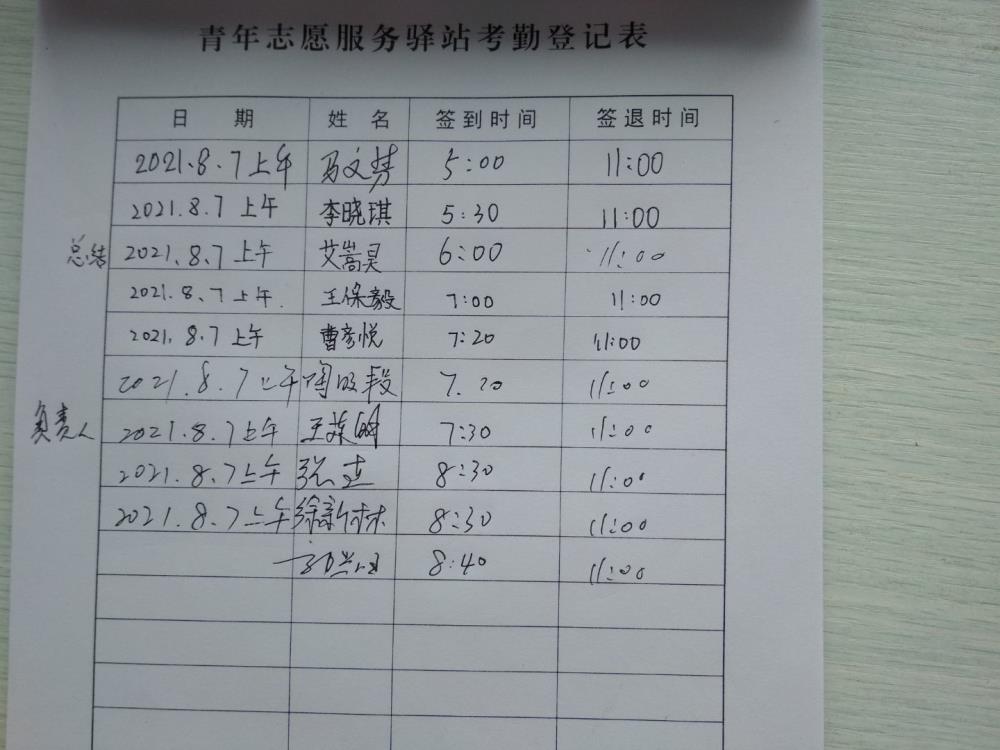 青年志愿服务驿站考勤登记表
日 期 姓 名 签到时间 签退时间
2021.8.7上午 马文慧 5:00 11:00
2021.8.7上午 李晓琪 5:30 11:00
总结 2021.8.7上午 艾嵩昊 6:00 11:00
2021.8.7上午. 王保毅 7:00 11:00
2021.8.7上午 曹彦悦 7:20 11:00
2021.8.7上午 7.20 11:00
负责人 2021.8.7上午 7:30 11:00
2021.8.7上午 8:30 11:00
2021.8.7上午 徐新林 8:30 11:00
8:40 11:00